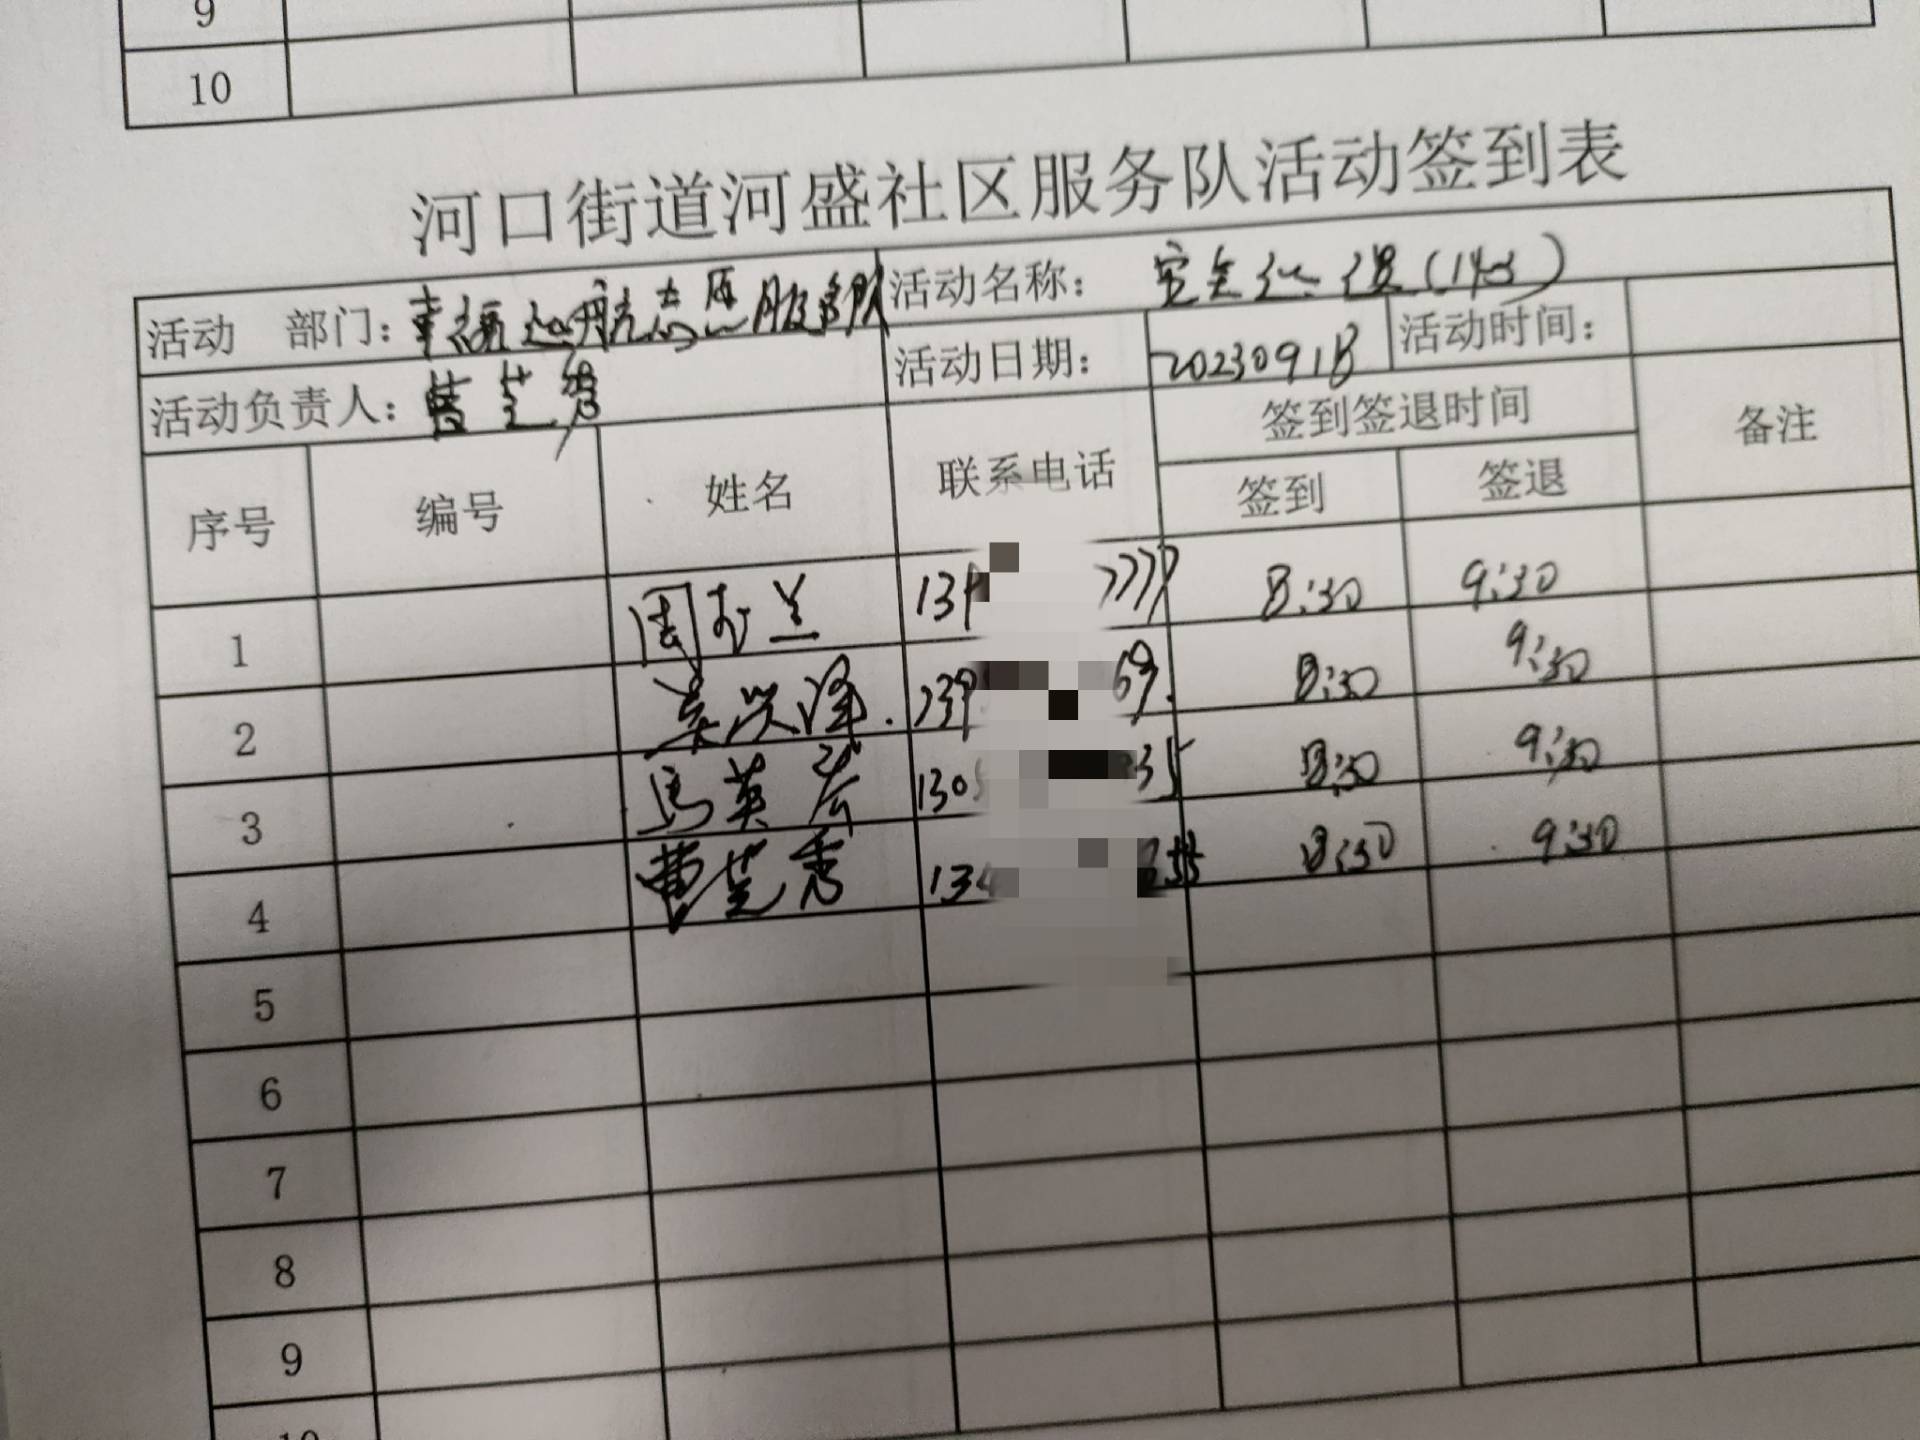 9
10
河口街道河盛社区服务队活动签到表
活动 部门：幸福起航志愿服务队 活动名称：安全巡逻(1小时)
活动负责人：曹芝秀 活动日期：20230918 活动时间：
序号 编号 姓名 联系电话 签到签退时间 备注
签到 签退
1 周 兰 7777 8:30 9:30
2 吴兴泽 139 69 8:30 9:30
3 马英宏 130 35 8:30 9:30
4 曹芝秀 134 8:30 9:30
5
6
7
8
9
10